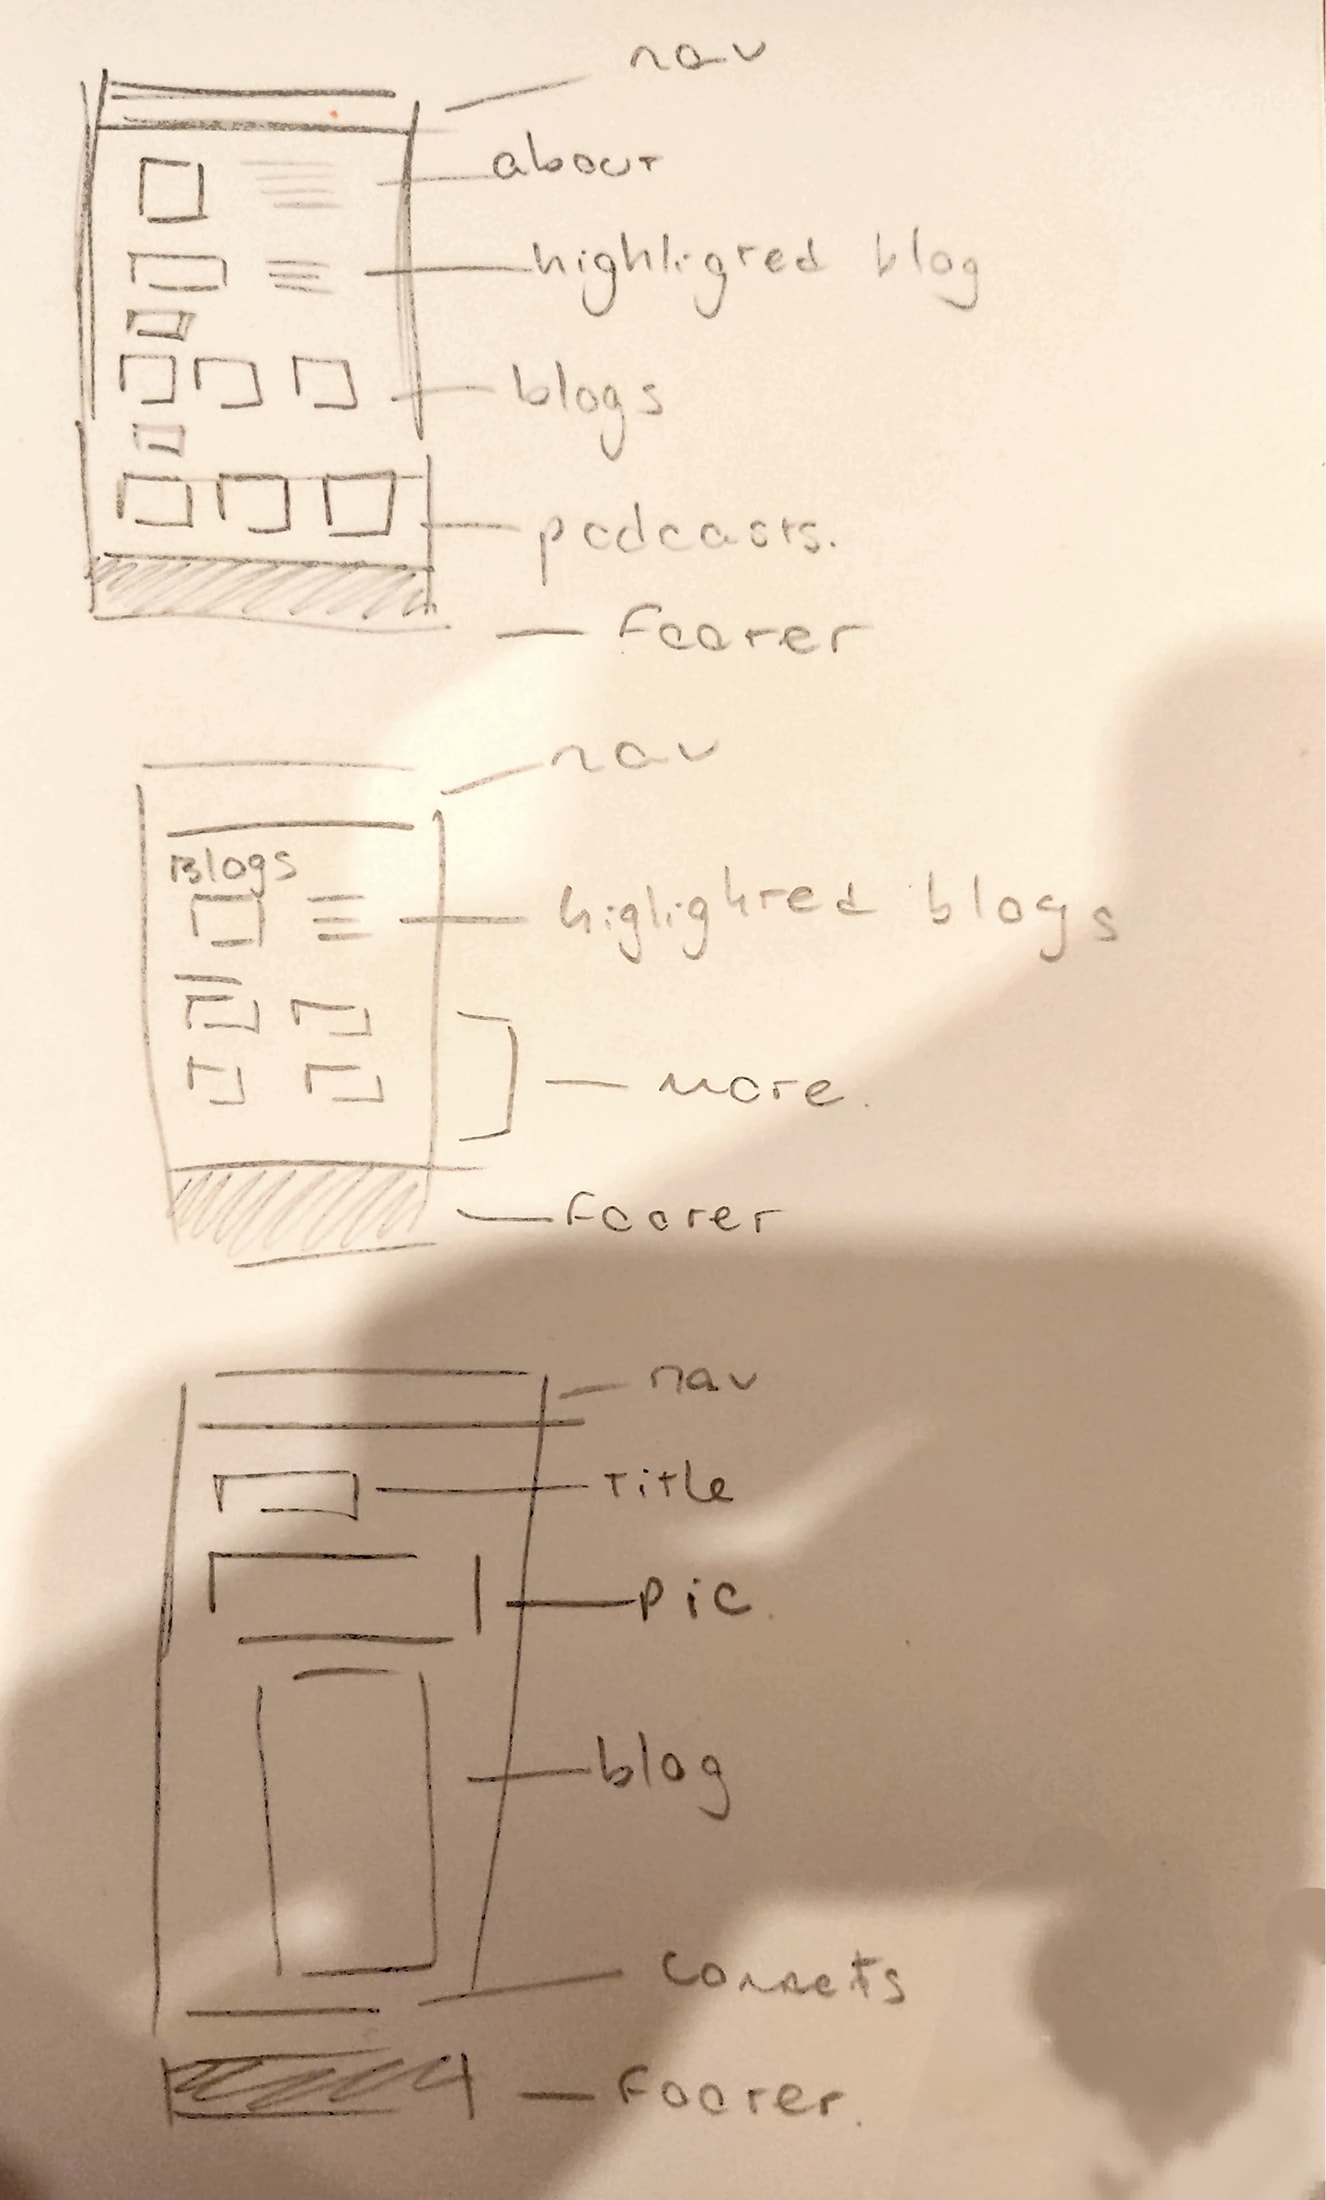 nav
about
highligted blog
blogs
podcasts.
footer
nav
Blogs
higlighted blogs
more.
footer
nav
Title
pic.
blog
footer.